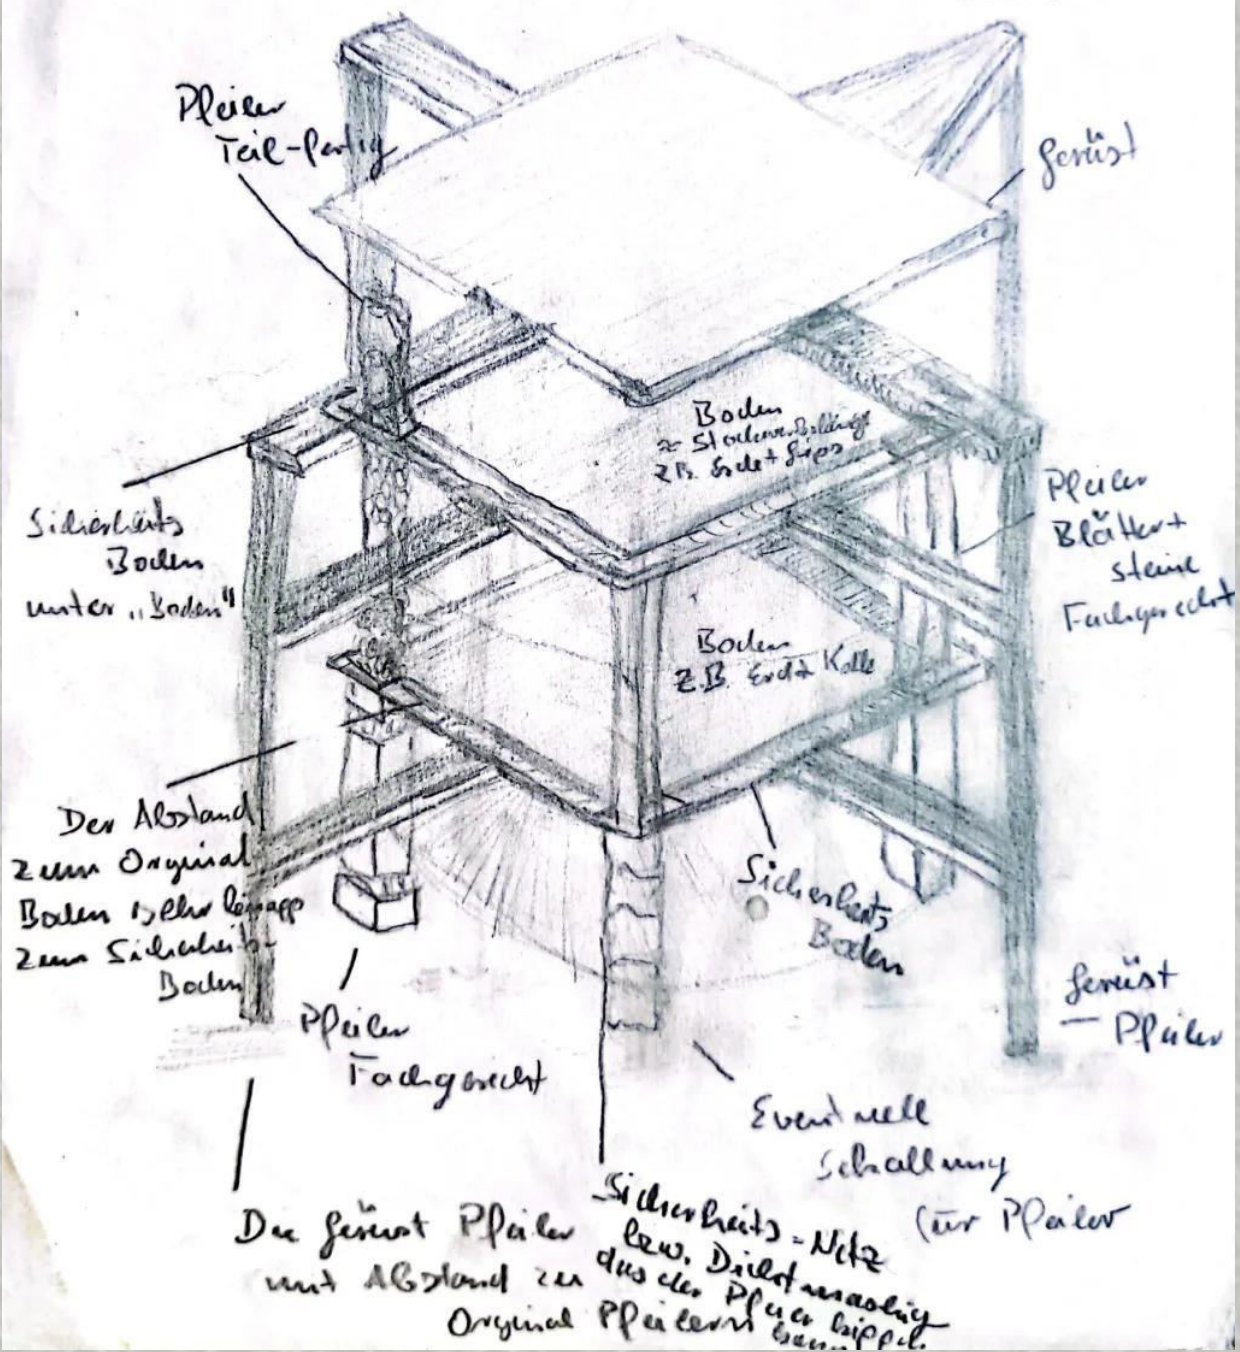 Pfeiler
Teil-fertig
Gerüst
Boden
z.B. Erde + Gips
Pfeiler
Blätter +
steine
Fachgerecht
Sicherheits
Boden
unter „Boden"
Boden
z.B. Erd+ Kalk
Der Abstand
zum Orginal
Boden
zum Sicherheits-
Boden
Sicherheits
Boden
Gerüst
- Pfeiler
Pfeiler
Fachgerecht
Eventuell
Schallung
für Pfeiler
Die Gerüst Pfeiler
mit Abstand zu
Orginal Pfeilern
Sicherheits-Netz
bzw. Dichtmaschig
das der kippen
kann